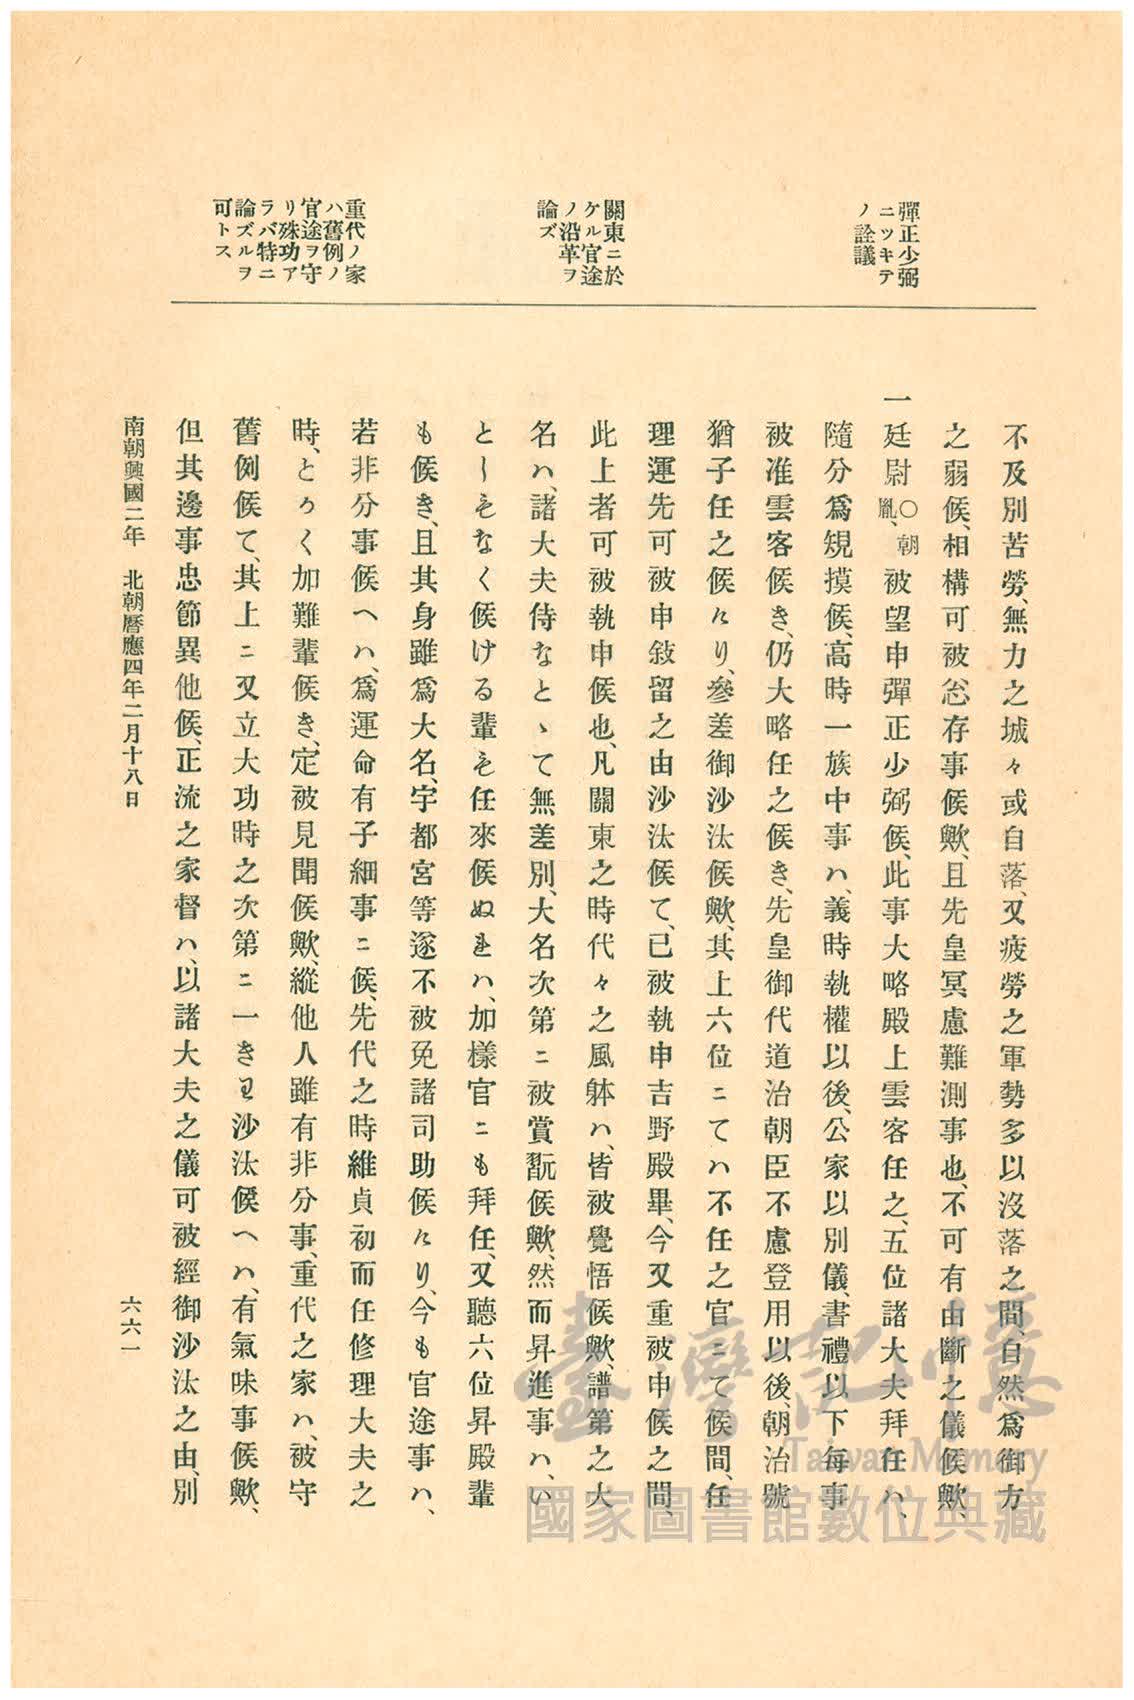 彈正少弼
ニツキテ
ノ詮議
關東ニ於
ケル官途
ノ沿革ヲ
論ズ
重代ノ家
ハ舊例ノ
官途ヲ守
リ殊功ア
ラバ特ニ
論ズルヲ
可トス
不及別苦勞、無力之城々或自落、又疲勞之軍勢多以沒落之間、自然爲御方
之弱候、相構可被忩存事候歟、且先皇冥慮難測事也、不可有由斷之儀候歟、
一廷尉○朝胤、被望申彈正少弼候、此事大略殿上雲客任之、五位諸大夫拜任ハ、
隨分爲規摸候、高時一族中事ハ、義時執權以後、公家以別儀、書禮以下每事
被准雲客候き、仍大略任之候き、先皇御代道治朝臣不慮登用以後、朝治號
猶子任之候ヘり、參差御沙汰候歟、其上六位ニてハ不任之官ニて候間、任
理運先可被申敍留之由沙汰候て、已被執申吉野殿畢、今又重被申候之間、
此上者可被執申候也、凡關東之時代々之風躰ハ、皆被覺悟候歟、譜第之大
名ハ、諸大夫侍なとゝて無差別、大名次第ニ被賞翫候歟、然而昇進事ハ、い
としもなく候ける輩も任來候ぬれハ、加樣官ニも拜任、又聽六位昇殿輩
も候き、且其身雖爲大名、宇都宮等遂不被免諸司助候ヘり、今も官途事ハ、
若非分事候ヘハ、爲運命有子細事ニ候、先代之時維貞初而任修理大夫之
時、とかく加難輩候き、定被見聞候歟、縱他人雖有非分事、重代之家ハ、被守
舊例候て、其上ニ又立大功時之次第ニ一きは沙汰候ヘハ、有氣味事候歟、
但其邊事忠節異他候、正流之家督ハ、以諸大夫之儀可被經御沙汰之由、別
南朝興國二年　北朝曆應四年二月十八日
六六一
臺灣記憶
Taiwan Memory
國家圖書館數位典藏